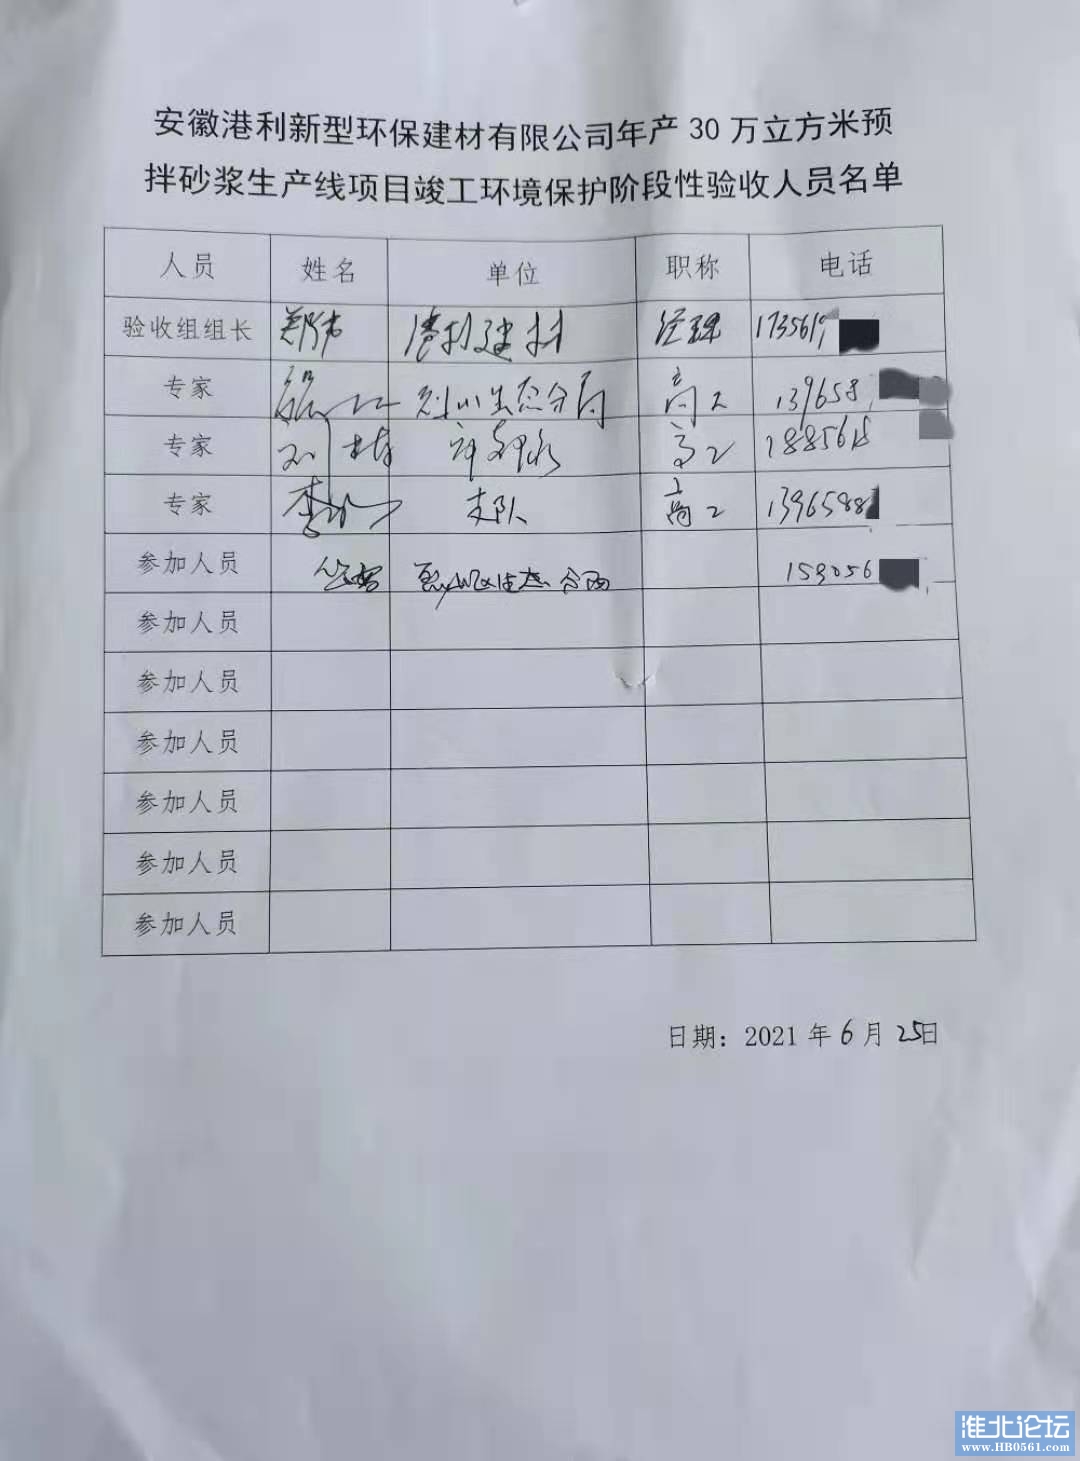 安徽港利新型环保建材有限公司年产 30 万立方米预
拌砂浆生产线项目竣工环境保护阶段性验收人员名单
人员 姓名 单位 职称 电话
验收组组长 郑伟 港利建材 经理 1735619
专家 生态分局 高工 139658
专家 刘 高工 1885618
专家 李 支队 高工 1396588
参加人员 159056
参加人员
参加人员
参加人员
参加人员
参加人员
参加人员
日期：2021 年 6 月 25日
淮北论坛
www.HB0561.com